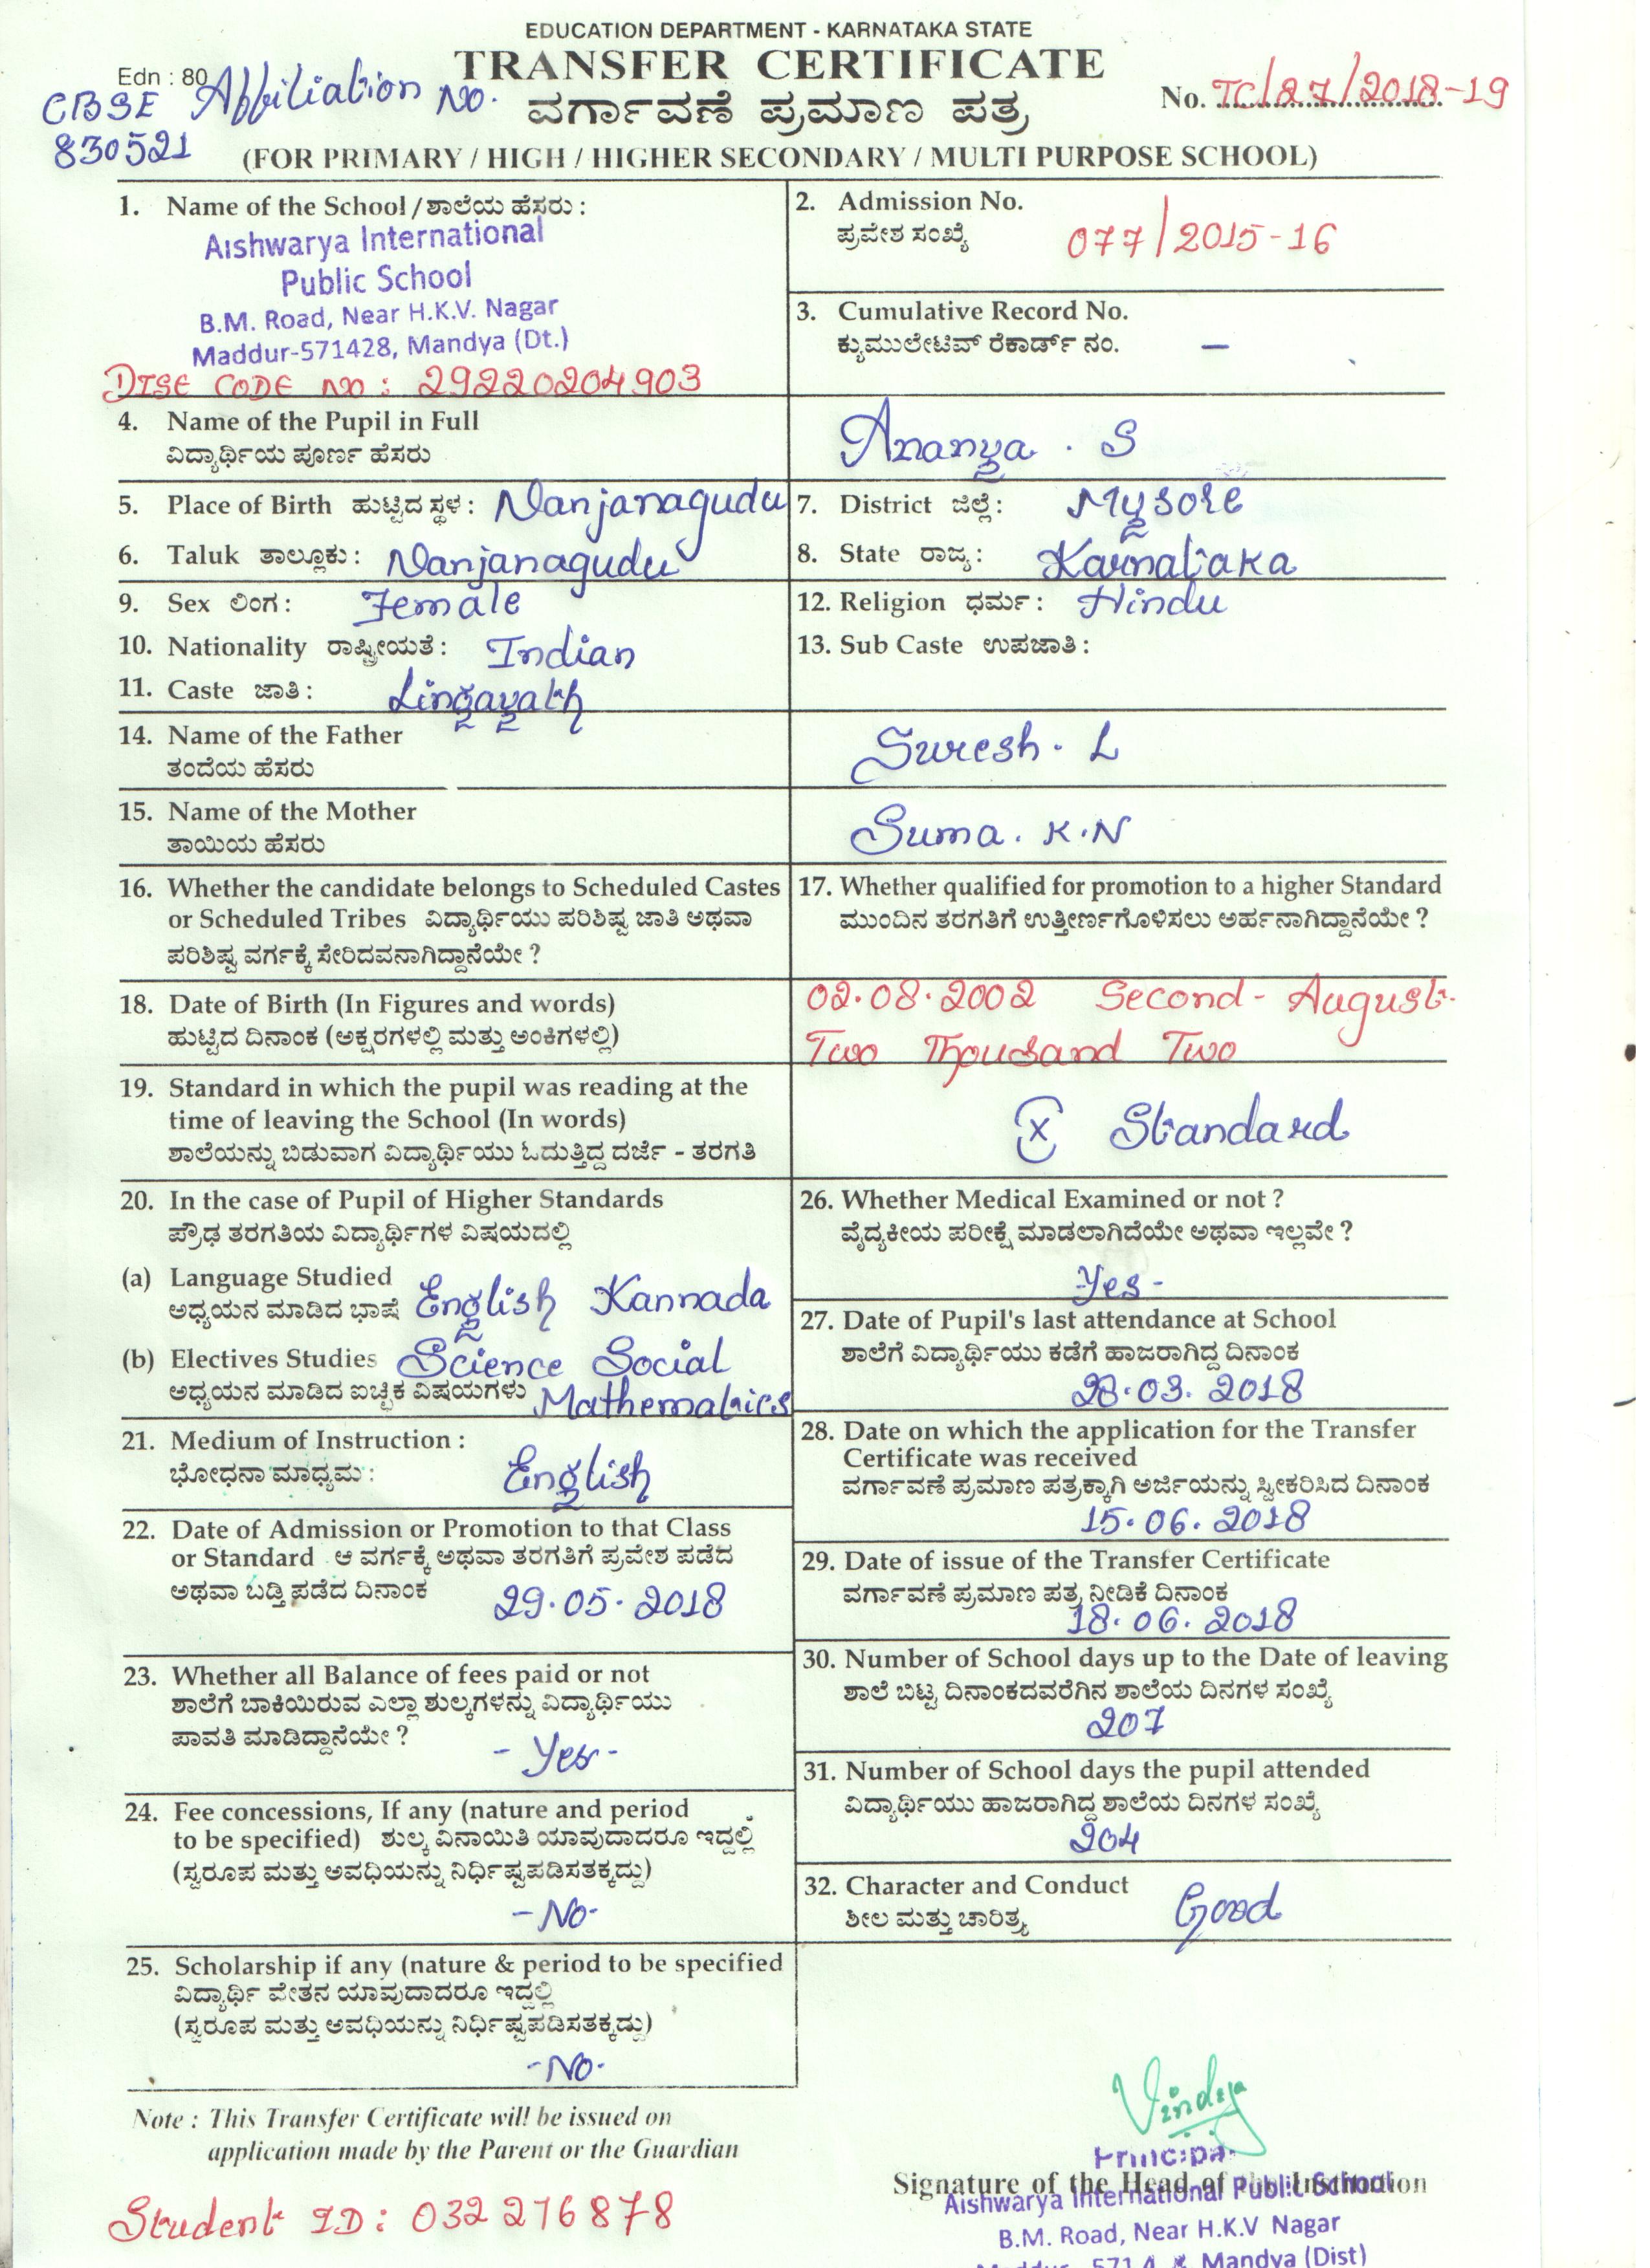 EDUCATION DEPARTMENT - KARNATAKA STATE
TRANSFER CERTIFICATE
Edn : 80
CBSE Affiliation No.
830521
ವರ್ಗಾವಣೆ ಪ್ರಮಾಣ ಪತ್ರ
No. TC/27/2018-19
(FOR PRIMARY / HIGH / HIGHER SECONDARY / MULTI PURPOSE SCHOOL)
1. Name of the School / ಶಾಲೆಯ ಹೆಸರು :
Aishwarya International
Public School
B.M. Road, Near H.K.V. Nagar
Maddur-571428, Mandya (Dt.)
DISE CODE NO : 29220204903
2. Admission No.
ಪ್ರವೇಶ ಸಂಖ್ಯೆ 077/2015-16
3. Cumulative Record No.
ಕ್ಯುಮುಲೇಟಿವ್ ರೆಕಾರ್ಡ್ ನಂ. –
4. Name of the Pupil in Full
ವಿದ್ಯಾರ್ಥಿಯ ಪೂರ್ಣ ಹೆಸರು
Ananya . S
5. Place of Birth ಹುಟ್ಟಿದ ಸ್ಥಳ : Nanjanagudu
6. Taluk ತಾಲ್ಲೂಕು : Nanjanagudu
7. District ಜಿಲ್ಲೆ : Mysore
8. State ರಾಜ್ಯ : Karnataka
9. Sex ಲಿಂಗ : Female
10. Nationality ರಾಷ್ಟ್ರೀಯತೆ : Indian
11. Caste ಜಾತಿ : Lingayath
12. Religion ಧರ್ಮ : Hindu
13. Sub Caste ಉಪಜಾತಿ :
14. Name of the Father
ತಂದೆಯ ಹೆಸರು
Suresh . L
15. Name of the Mother
ತಾಯಿಯ ಹೆಸರು
Suma . K.N
16. Whether the candidate belongs to Scheduled Castes
or Scheduled Tribes ವಿದ್ಯಾರ್ಥಿಯು ಪರಿಶಿಷ್ಟ ಜಾತಿ ಅಥವಾ
ಪರಿಶಿಷ್ಟ ವರ್ಗಕ್ಕೆ ಸೇರಿದವನಾಗಿದ್ದಾನೆಯೇ ?
17. Whether qualified for promotion to a higher Standard
ಮುಂದಿನ ತರಗತಿಗೆ ಉತ್ತೀರ್ಣಗೊಳಿಸಲು ಅರ್ಹನಾಗಿದ್ದಾನೆಯೇ ?
18. Date of Birth (In Figures and words)
ಹುಟ್ಟಿದ ದಿನಾಂಕ (ಅಕ್ಷರಗಳಲ್ಲಿ ಮತ್ತು ಅಂಕಿಗಳಲ್ಲಿ)
02.08.2002 Second - August
Two Thousand Two
19. Standard in which the pupil was reading at the
time of leaving the School (In words)
ಶಾಲೆಯನ್ನು ಬಿಡುವಾಗ ವಿದ್ಯಾರ್ಥಿಯು ಓದುತ್ತಿದ್ದ ದರ್ಜೆ - ತರಗತಿ
X Standard
20. In the case of Pupil of Higher Standards
ಪ್ರೌಢ ತರಗತಿಯ ವಿದ್ಯಾರ್ಥಿಗಳ ವಿಷಯದಲ್ಲಿ
(a) Language Studied
ಅಧ್ಯಯನ ಮಾಡಿದ ಭಾಷೆ English Kannada
(b) Electives Studies Science Social
ಅಧ್ಯಯನ ಮಾಡಿದ ಐಚ್ಛಿಕ ವಿಷಯಗಳು Mathematics
21. Medium of Instruction :
ಭೋಧನಾ ಮಾಧ್ಯಮ : English
22. Date of Admission or Promotion to that Class
or Standard ಆ ವರ್ಗಕ್ಕೆ ಅಥವಾ ತರಗತಿಗೆ ಪ್ರವೇಶ ಪಡೆದ
ಅಥವಾ ಬಡ್ತಿ ಪಡೆದ ದಿನಾಂಕ 29.05.2018
23. Whether all Balance of fees paid or not
ಶಾಲೆಗೆ ಬಾಕಿಯಿರುವ ಎಲ್ಲಾ ಶುಲ್ಕಗಳನ್ನು ವಿದ್ಯಾರ್ಥಿಯು
ಪಾವತಿ ಮಾಡಿದ್ದಾನೆಯೇ ? - Yes -
24. Fee concessions, If any (nature and period
to be specified) ಶುಲ್ಕ ವಿನಾಯಿತಿ ಯಾವುದಾದರೂ ಇದ್ದಲ್ಲಿ
(ಸ್ವರೂಪ ಮತ್ತು ಅವಧಿಯನ್ನು ನಿರ್ಧಿಷ್ಟಪಡಿಸತಕ್ಕದ್ದು)
- No -
25. Scholarship if any (nature & period to be specified
ವಿದ್ಯಾರ್ಥಿ ವೇತನ ಯಾವುದಾದರೂ ಇದ್ದಲ್ಲಿ
(ಸ್ವರೂಪ ಮತ್ತು ಅವಧಿಯನ್ನು ನಿರ್ಧಿಷ್ಟಪಡಿಸತಕ್ಕದ್ದು)
- No -
26. Whether Medical Examined or not ?
ವೈದ್ಯಕೀಯ ಪರೀಕ್ಷೆ ಮಾಡಲಾಗಿದೆಯೇ ಅಥವಾ ಇಲ್ಲವೇ ?
- Yes -
27. Date of Pupil's last attendance at School
ಶಾಲೆಗೆ ವಿದ್ಯಾರ್ಥಿಯು ಕಡೆಗೆ ಹಾಜರಾಗಿದ್ದ ದಿನಾಂಕ
28.03.2018
28. Date on which the application for the Transfer
Certificate was received
ವರ್ಗಾವಣೆ ಪ್ರಮಾಣ ಪತ್ರಕ್ಕಾಗಿ ಅರ್ಜಿಯನ್ನು ಸ್ವೀಕರಿಸಿದ ದಿನಾಂಕ
15.06.2018
29. Date of issue of the Transfer Certificate
ವರ್ಗಾವಣೆ ಪ್ರಮಾಣ ಪತ್ರ ನೀಡಿಕೆ ದಿನಾಂಕ
18.06.2018
30. Number of School days up to the Date of leaving
ಶಾಲೆ ಬಿಟ್ಟ ದಿನಾಂಕದವರೆಗಿನ ಶಾಲೆಯ ದಿನಗಳ ಸಂಖ್ಯೆ
207
31. Number of School days the pupil attended
ವಿದ್ಯಾರ್ಥಿಯು ಹಾಜರಾಗಿದ್ದ ಶಾಲೆಯ ದಿನಗಳ ಸಂಖ್ಯೆ
204
32. Character and Conduct
ಶೀಲ ಮತ್ತು ಚಾರಿತ್ರ್ಯ Good
Note : This Transfer Certificate will be issued on
application made by the Parent or the Guardian
Student ID : 032276878
Principal
Signature of the Head of the Institution
Aishwarya International Public School
B.M. Road, Near H.K.V Nagar
Mandya (Dist)